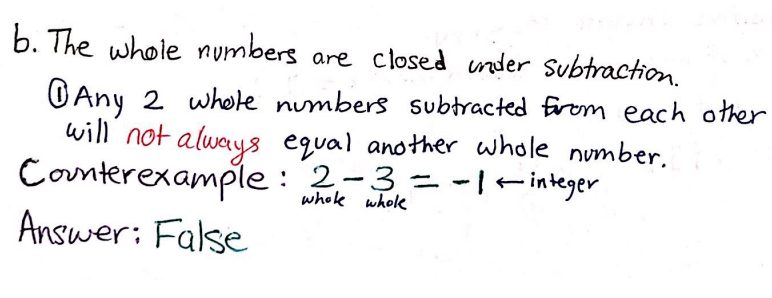 b. The whole numbers are closed under subtraction.
① Any 2 whole numbers subtracted from each other
will not always equal another whole number.
Counterexample : 2 - 3 = -1 ← integer
whole whole
Answer: False